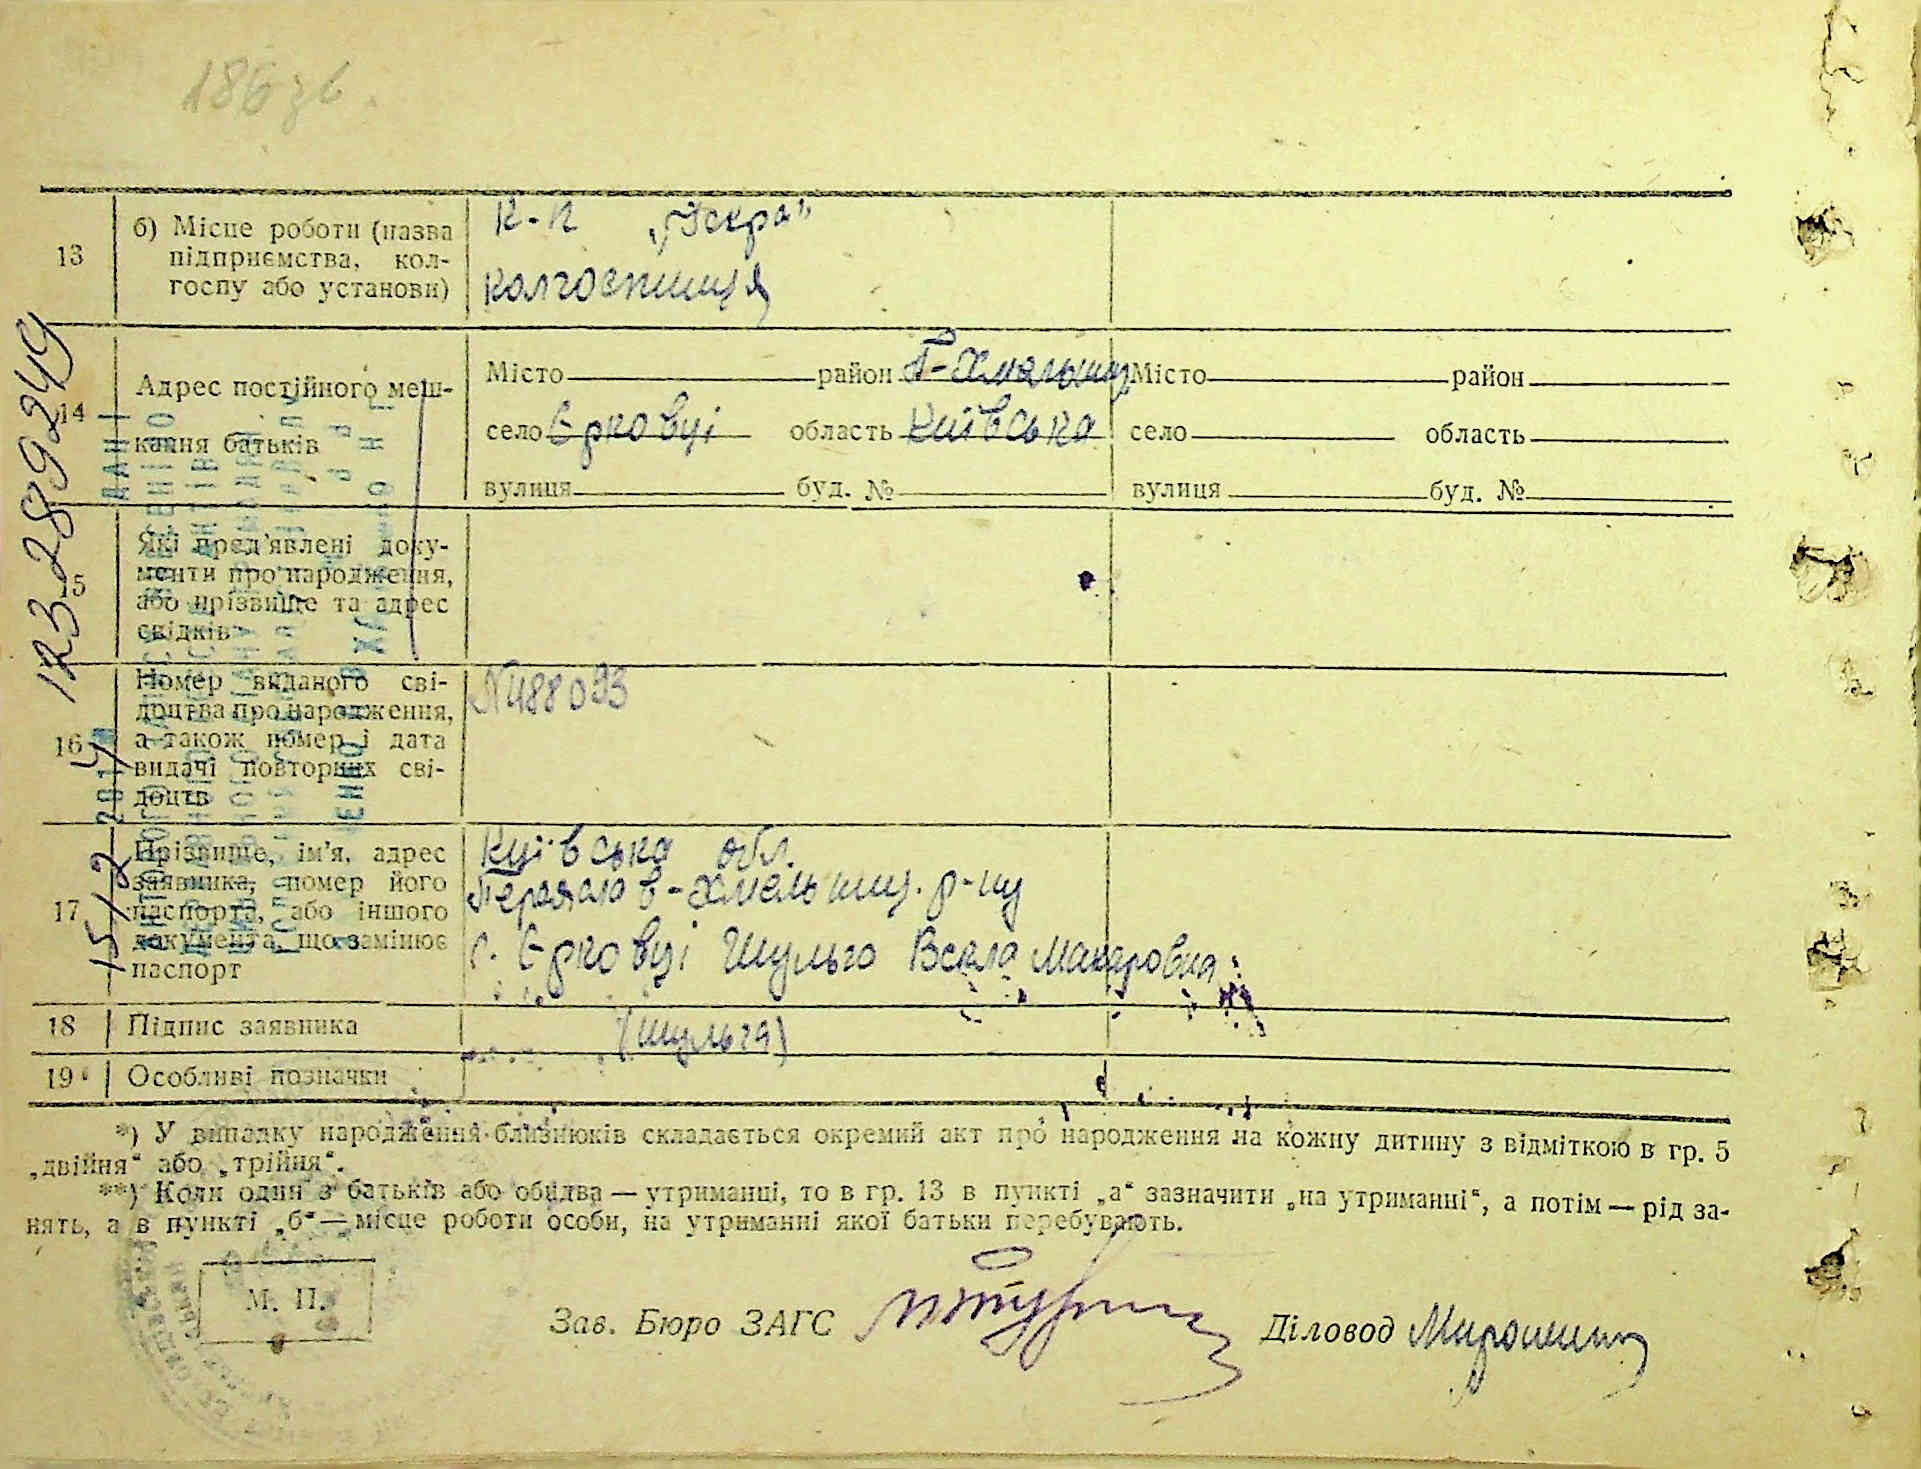 186 зв.
13
б) Місце роботи (назва
підприємства, кол-
госпу або установи)
К-п „Іскра“
колгоспниця
14
Адрес постійного меш-
кання батьків
Місто район П-Хмельниц
село Єрковці область Київська
вулиця буд. №
Місто район
село область
вулиця буд. №
15
Які пред'явлені доку-
менти про народження,
або прізвище та адрес
свідків
16
Номер виданого сві-
доцтва про народження,
а також номер і дата
видачі повторних сві-
доцтв
N 488093
17
Прізвище, ім'я, адрес
заявника, номер його
паспорта, або іншого
документа, що замінює
паспорт
Київська обл.
Переяслов-Хмельниц. р-ну
с. Єрковці Шульго Векла Макаровна
18
Підпис заявника
(Шульга)
19
Особливі позначки
*) У випадку народження близнюків складається окремий акт про народження на кожну дитину з відміткою в гр. 5
„двійня“ або „трійня“.
**) Коли один з батьків або обидва — утриманці, то в гр. 13 в пункті „а“ зазначити „на утриманні“, а потім — рід за-
нять, а в пункті „б“ — місце роботи особи, на утриманні якої батьки перебувають.
М. П.
Зав. Бюро ЗАГС
Діловод
123-289249